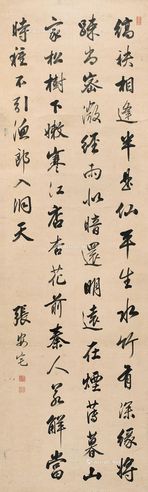 縞袂相逢半是仙平生水竹有深緣將
疎尚密微經雨似暗還明遠在煙薄暮山
家松樹下嫩寒江店杏花前秦人若解當
時種不引漁郎入洞天
張安宅